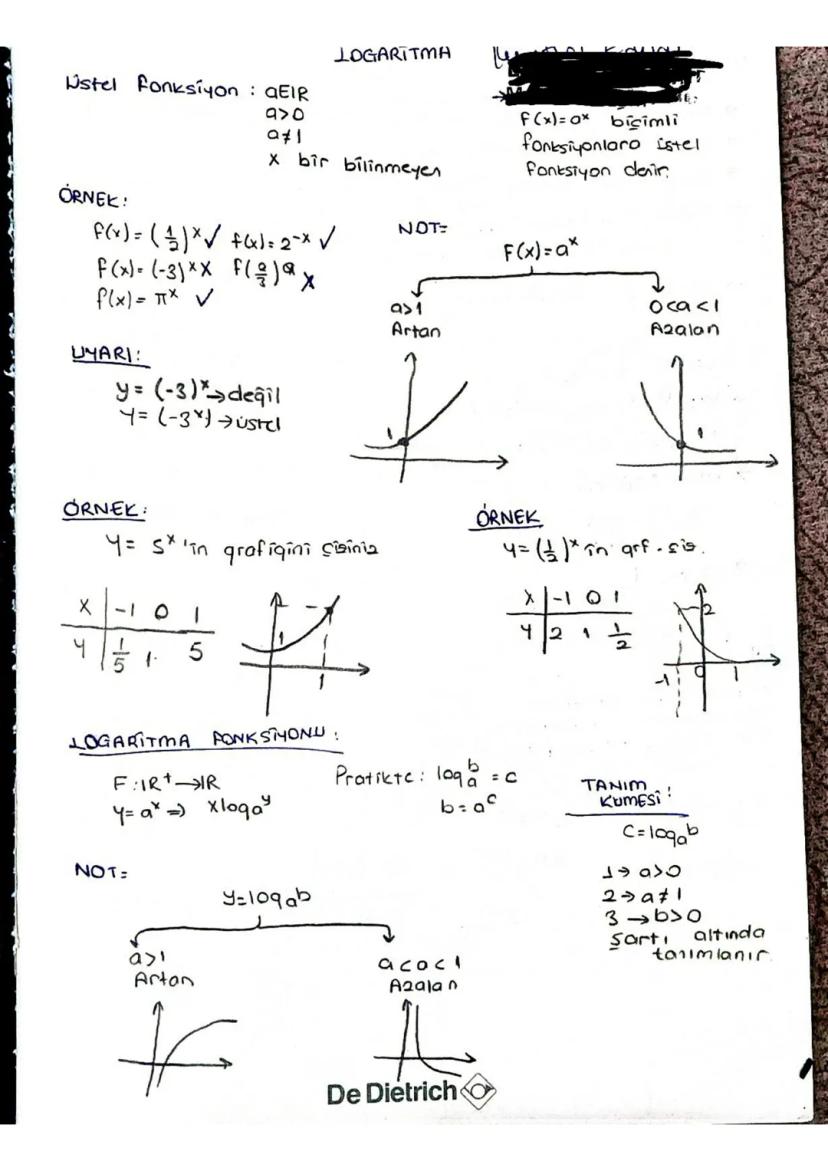 LOGARİTMA
Üstel Fonksiyon : a∈IR
a>0
a≠1
x bir bilinmeyen
F(x)=aˣ biçimli
fonksiyonlara üstel
fonksiyon denir.
ÖRNEK:
f(x)=(1/2)ˣ✓ f(x)=2⁻ˣ ✓
f(x)=(-3)ˣ X f(a/3)ᵃ X
f(x)=πˣ ✓
NOT=
F(x)=aˣ
a>1
Artan
0<a<1
Azalan
1
1
UYARI:
y = (-3)ˣ→değil
y = (-3ˣ)→üstel
ÖRNEK:
y= 5ˣ 'in grafiğini çiziniz
x -1 0 1
y 1/5 1 5
1
1
ÖRNEK
y=(1/2)ˣ in grf. çiz.
x -1 0 1
y 2 1 1/2
2
-1 0 1
LOGARİTMA FONKSİYONU :
F:IR⁺→IR
y=aˣ ⇒ xlogaʸ
Pratikte: logₐᵇ = c
b=aᶜ
TANIM
KÜMESİ:
C=logₐb
1→ a>0
2→a≠1
3→b>0
şartı altında
tanımlanır.
NOT=
y=logₐb
a>1
Artan
a<o<1
Azalan
De Dietrich